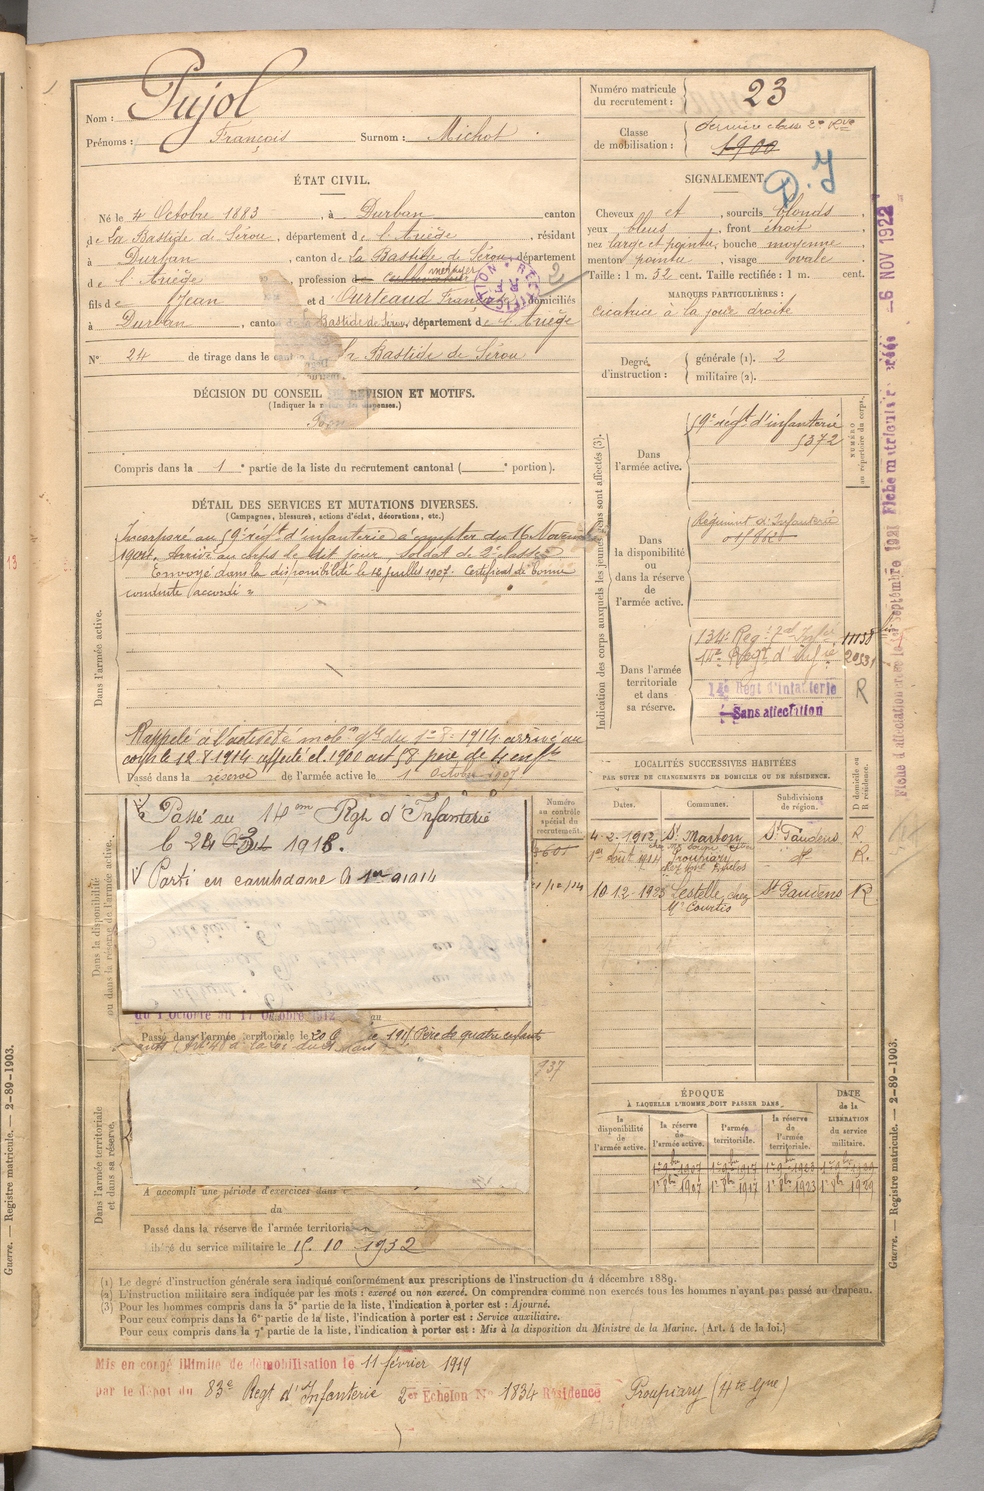 Nom : Pujol
Prénoms : François Surnom : Michot
Numéro matricule du recrutement : 23
Classe de mobilisation : dernière classe 2e Rve
1900
P. J
ÉTAT CIVIL.
Né le 4 Octobre 1883, à Durban canton
de La Bastide de Sérou, département de l'Ariège, résidant
à Durban, canton de la Bastide de Sérou, département
de l'Ariège, profession de Cultivateur métayer
fils de Jean et d Curteaud Françoise domiciliés
à Durban, canton de la Bastide de Sérou, département de l'Ariège
N° 24 de tirage dans le canton d La Bastide de Sérou
RECTIFICATION R.F.
2
SIGNALEMENT.
Cheveux et, sourcils blonds,
yeux bleus, front étroit
nez large et pointu, bouche moyenne
menton pointu, visage ovale.
Taille : 1 m. 52 cent. Taille rectifiée : 1 m. cent.
MARQUES PARTICULIÈRES :
Cicatrice à la joue droite
Degré d'instruction :
générale (1). 2
militaire (2).
DÉCISION DU CONSEIL DE RÉVISION ET MOTIFS.
(Indiquer la dispenses.)
Bon
Compris dans la 1e partie de la liste du recrutement cantonal ( e portion).
DÉTAIL DES SERVICES ET MUTATIONS DIVERSES.
(Campagnes, blessures, actions d'éclat, décorations, etc.)
Dans l'armée active.
Incorporé au 59e régt d'infanterie à compter du 16 Novembre
1904. Arrivé au corps le dit jour, soldat de 2e classe
Envoyé dans la disponibilité le 12 juillet 1907. Certificat de bonne
conduite "accordé"
Rappelé à l'activité mobon gle du 1er 8. 1914 arrivé au
corps le 12.8.1914 affecté cl. 1900 art 58 père de 4 enfts
Passé dans la réserve de l'armée active le 1 Octobre 1907
Dans la disponibilité ou dans la réserve de l'armée active.
Passé au 14em Rgt d'Infanterie
le 24 1918.
Parti en campagne le 1er 9 1914
du 1 Octobre au 17 Octobre 1912 au
Passé dans l'armée territoriale le 20 191 Père de quatre enfants
Dans l'armée territoriale et dans sa réserve.
A accompli une période d'exercices dans
du
Passé dans la réserve de l'armée territoriale
Libéré du service militaire le 15. 10 1932
Indication des corps auxquels les jeunes gens sont affectés (3).
NUMÉRO au répertoire du corps.
Dans l'armée active.
59e régt d'infanterie
5372
Dans la disponibilité ou dans la réserve de l'armée active.
Régiment d'Infanterie
Dans l'armée territoriale et dans sa réserve.
134e Reg. t al Infie 11138
14e Regt d'Infie
14e Régt d'Infanterie R
Sans affectation
LOCALITÉS SUCCESSIVES HABITÉES
PAR SUITE DE CHANGEMENTS DE DOMICILE OU DE RÉSIDENCE.
Numéro au contrôle spécial du recrutement.
Dates. Communes. Subdivisions de région. D domicile ou R résidence.
4-2-1912 St Martory St Gaudens R
1er Août 1914 Proupiary do R.
10.12.1925 Lestelle chez St Gaudens R
Mr Courtis
937
ÉPOQUE
À LAQUELLE L'HOMME DOIT PASSER DANS
DATE de la LIBÉRATION du service militaire.
la disponibilité de l'armée active. la réserve de l'armée active. l'armée territoriale. la réserve de l'armée territoriale.
1er 9bre 1907 1er 9bre 1917 1er 9bre 1923 1er 9bre 1929
1er 8bre 1907 1er 8bre 1917 1er 8bre 1923 1er 8bre 1929
(1) Le degré d'instruction générale sera indiqué conformément aux prescriptions de l'instruction du 4 décembre 1889.
(2) L'instruction militaire sera indiquée par les mots : exercé ou non exercé. On comprendra comme non exercés tous les hommes n'ayant pas passé au drapeau.
(3) Pour les hommes compris dans la 5e partie de la liste, l'indication à porter est : Ajourné.
Pour ceux compris dans la 6e partie de la liste, l'indication à porter est : Service auxiliaire.
Pour ceux compris dans la 7e partie de la liste, l'indication à porter est : Mis à la disposition du Ministre de la Marine. (Art. 4 de la loi.)
Mis en congé illimité de démobilisation le 11 février 1919
par le dépôt du 83e Regt d'Infanterie 2er Echelon No 1834 Résidence Proupiary (Hte Gne)
Guerre. — Registre matricule. — 2-89-1903.
Guerre. — Registre matricule. — 2-89-1903.
Fiche matriculaire créée -6 NOV 1922
Fiche d'affectation créée le septembre 1921
13